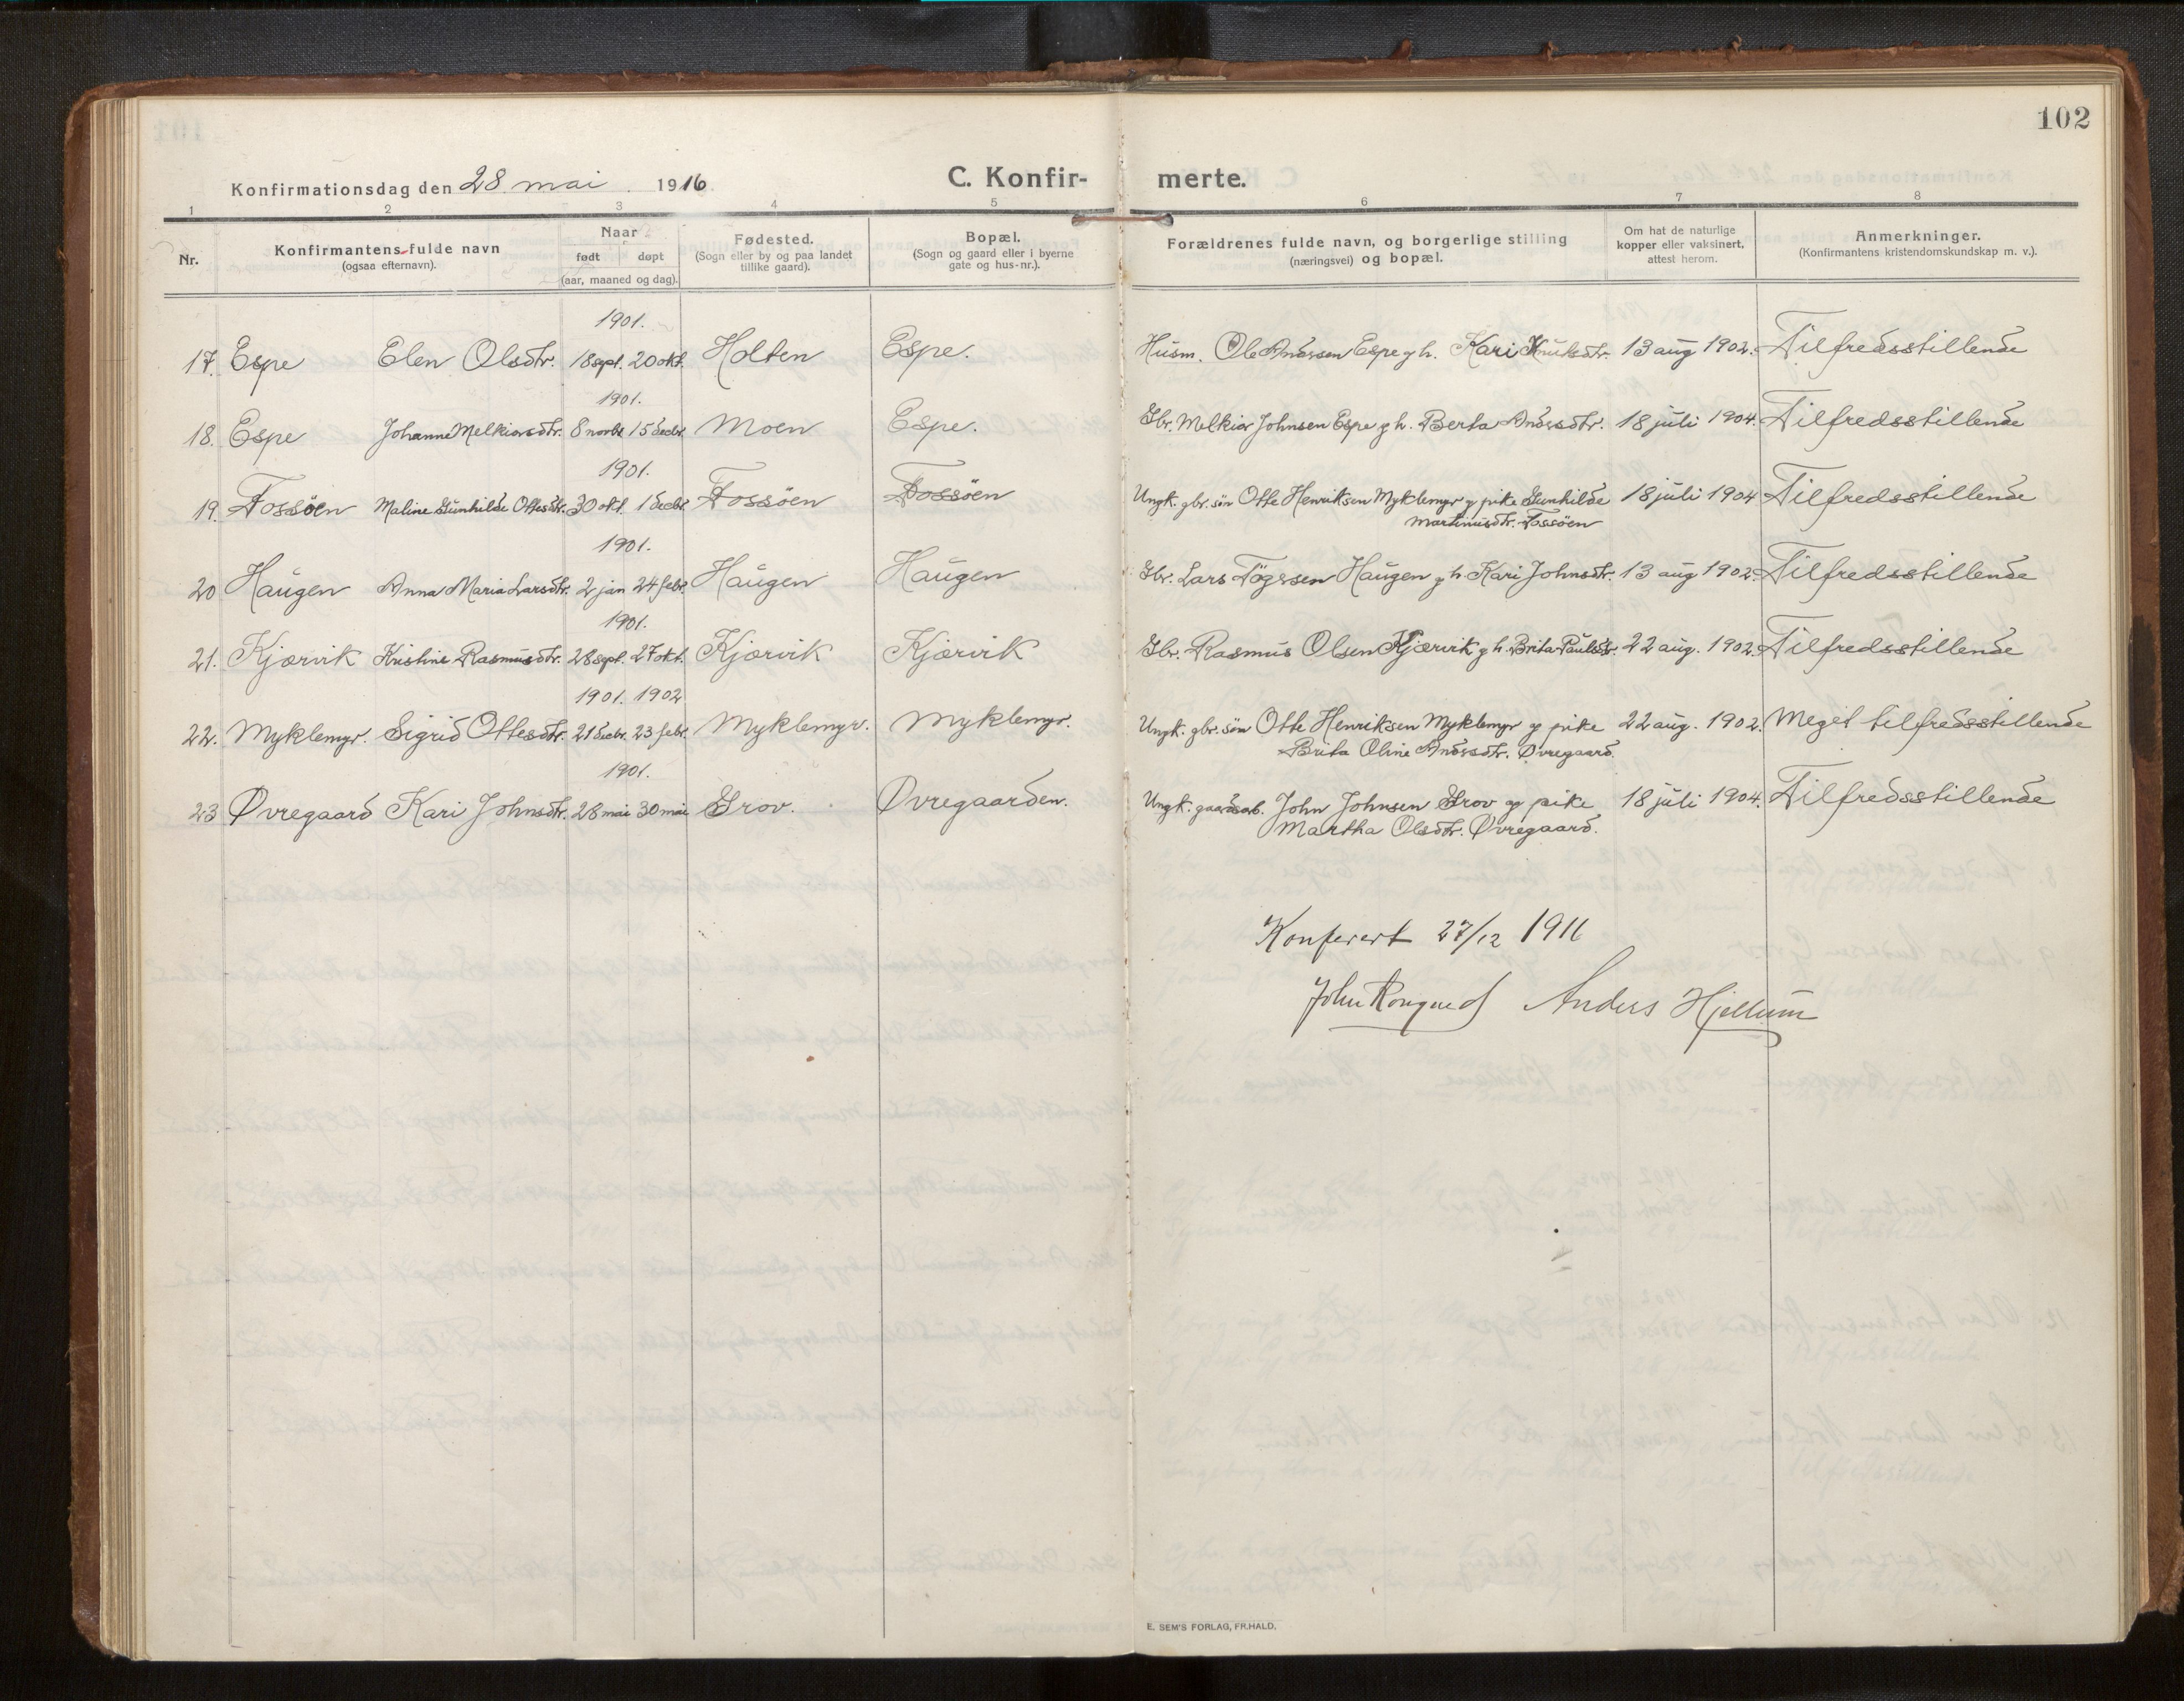 102
Konfirmationsdag den 28. mai 1916
C. Konfir- merte.
1 2 3 4 5 6 7 8
Nr.
Konfirmantens fulde navn
(ogsaa efternavn).
Naar
født døpt
(aar, maaned og dag).
Fødested.
(Sogn eller by og paa landet
tillike gaard).
Bopæl.
(Sogn og gaard eller i byerne
gate og hus-nr.).
Forældrenes fulde navn, og borgerlige stilling
(næringsvei) og bopæl.
Om hat de naturlige
kopper eller vaksinert,
attest herom.
Anmerkninger.
(Konfirmantens kristendomskundskap m. v.).
1901.
17. Espe Elen Olsdtr. 18 sept. 20 okt. Holten Espe. Husm. Ole Andersen Espe og h. Kari Knutsdtr. 13 aug 1902. Tilfredsstillende
1901.
18. Espe Johanne Melkiorsdtr. 8 novbr 15 decbr. Moen Espe. Gbr. Melkior Johnsen Espe og h. Berta Andersdtr. 18 juli 1904. Tilfredsstillende
1901.
19. Fossöen Maline Gunhilde Ottesdtr. 30 okt. 1 decbr. Fossöen Fossöen Ungk. gbr. søn Otte Henriksen Myklemyr og pike Gunhilde 18 juli 1904 Tilfredsstillende
Martinusdtr. Fossöen
1901.
20 Haugen Anna Maria Larsdtr. 2 jan 24 febr. Haugen Haugen Gbr. Lars Tøgersen Haugen og h. Kari Johnsdtr. 13 aug 1902. Tilfredsstillende
1901.
21. Kjærvik Kristine Rasmusdtr. 28 sept. 27 okt. Kjærvik Kjærvik Gbr. Rasmus Olsen Kjærvik og h. Brita Paulsdtr. 22 aug. 1902. Tilfredsstillende
1901. 1902
22. Myklemyr. Sigrid Ottesdtr. 21 decbr. 23 febr. Myklemyr. Myklemyr. Ungk. gbr. søn Otte Henriksen Myklemyr og pike 22 aug. 1902. Meget tilfredsstillende
Brita Oline Andersdtr. Øvregaard.
1901.
23 Øvregaard Kari Johnsdtr. 28 mai 30 mai Grov. Øvregaarden. Ungk. gaardsarb. John Johnsen Grov og pike 18 juli 1904. Tilfredsstillende
Martha Olsdtr. Øvregaard.
Konferert 27/12 1916
John Anders Hjellum
E. SEM'S FORLAG, FR.HALD.